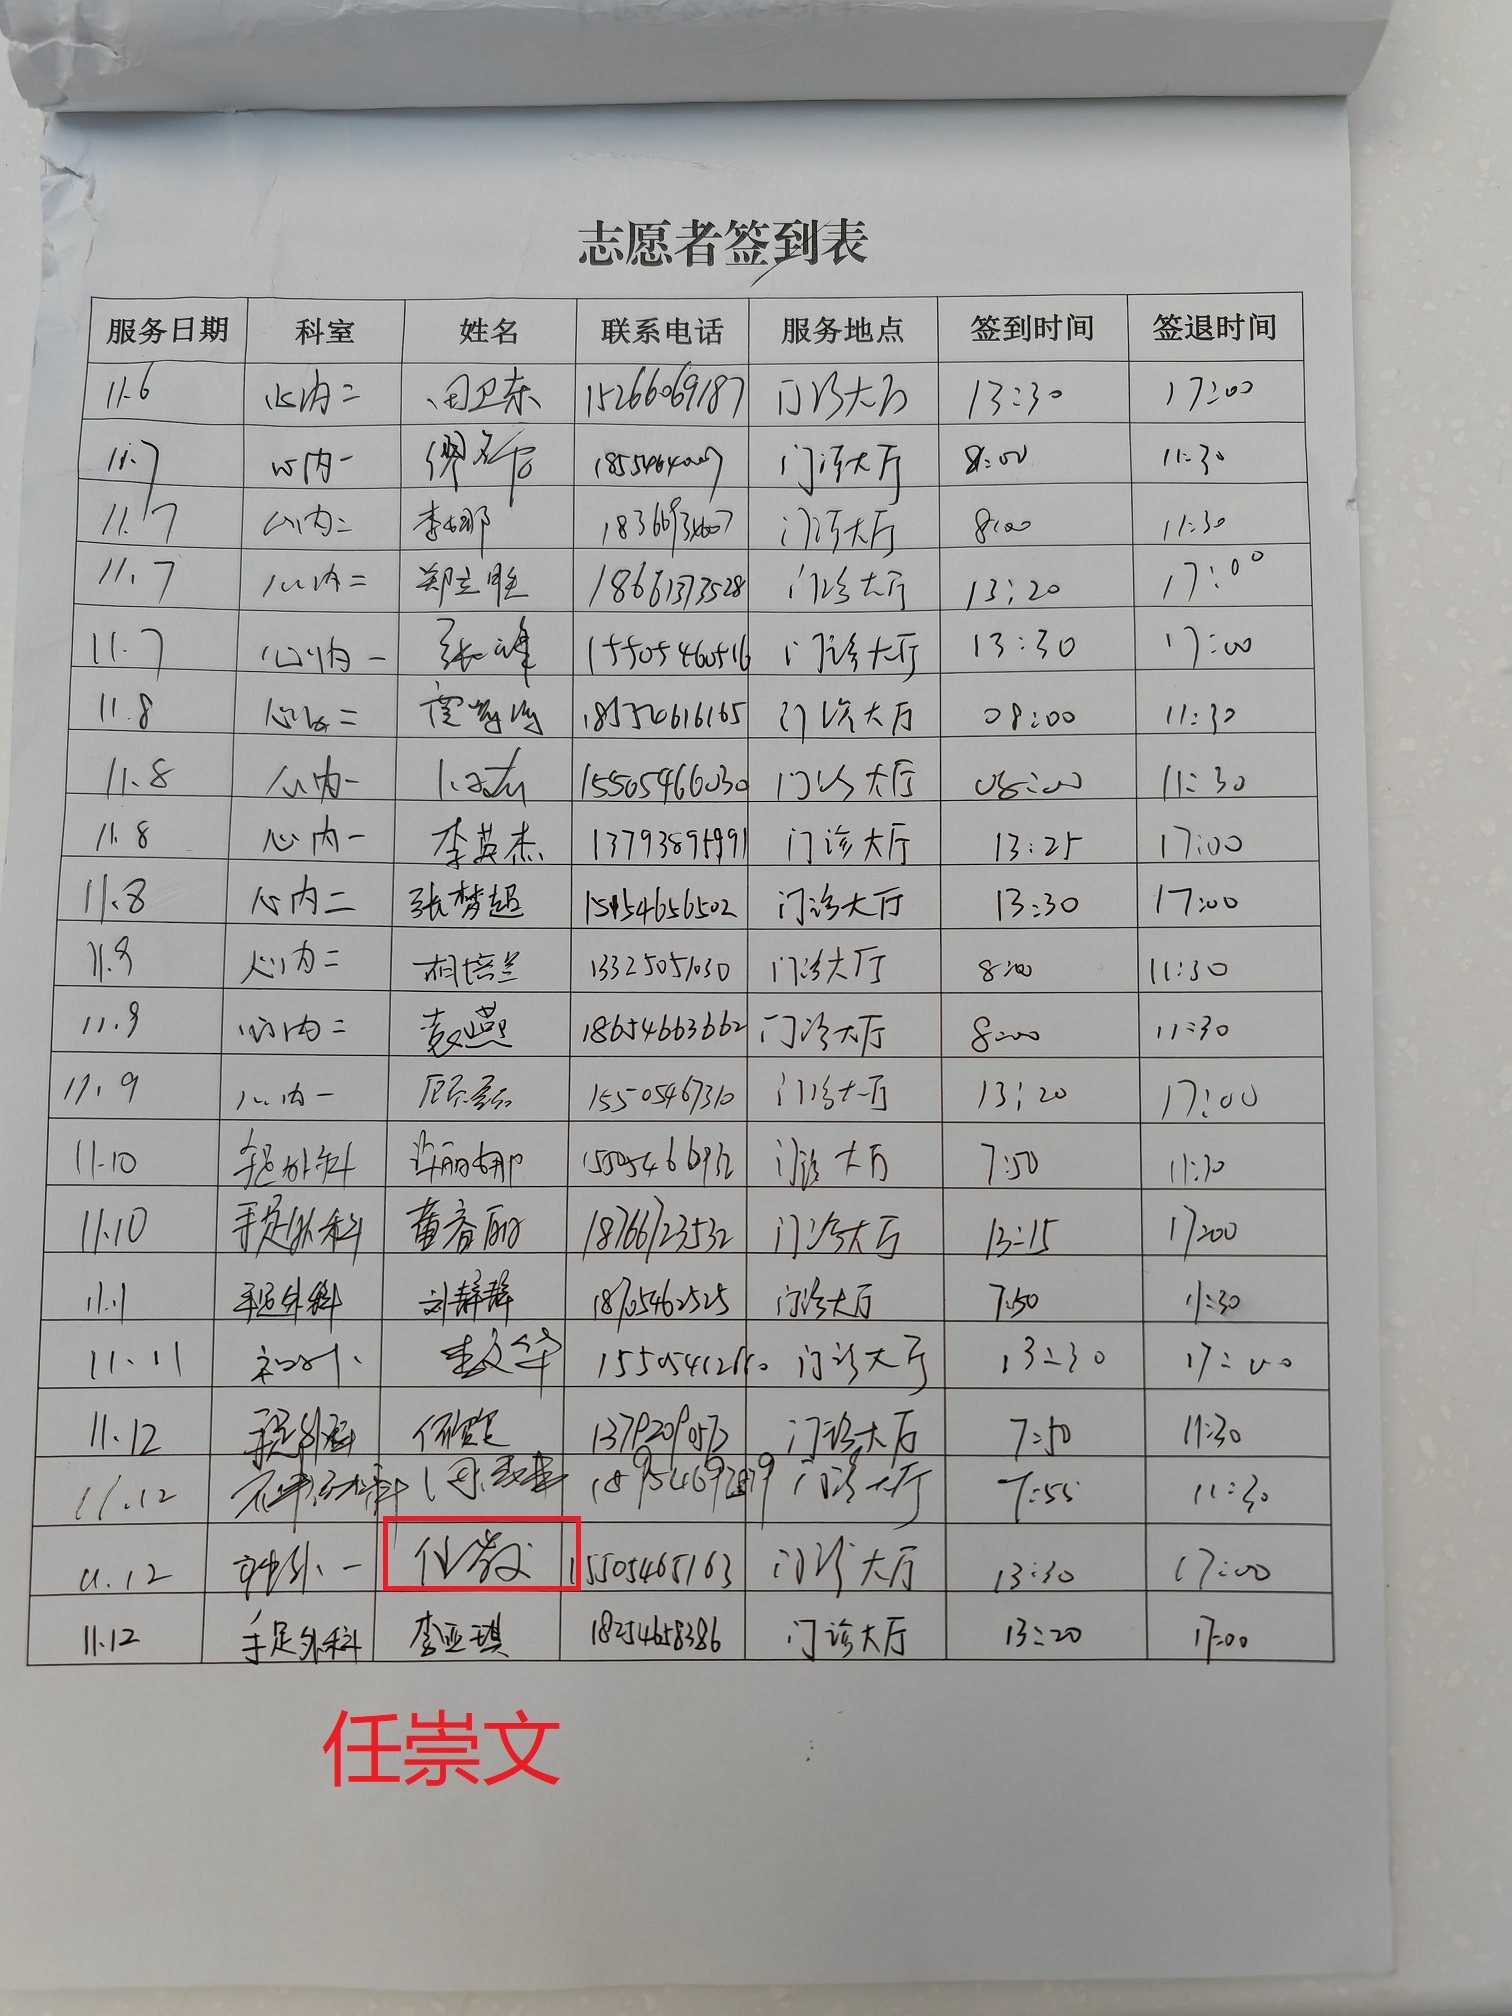 志愿者签到表
服务日期 科室 姓名 联系电话 服务地点 签到时间 签退时间
11.6 心内二 田卫东 15266069187 门诊大厅 13:30 17:00
11.7 心内一 门诊大厅 8:00 11:30
11.7 心内二 李娜 门诊大厅 8:00 11:30
11.7 心内二 郑立胜 18661373528 门诊大厅 13:20 17:00
11.7 心内一 张峰 15505460516 门诊大厅 13:30 17:00
11.8 心内二 门诊大厅 08:00 11:30
11.8 心内一 15505466030 门诊大厅 08:00 11:30
11.8 心内一 李英杰 门诊大厅 13:25 17:00
11.8 心内二 张梦超 15954656502 门诊大厅 13:30 17:00
11.9 心内二 相培兰 13325051030 门诊大厅 8:00 11:30
11.9 心内二 袁燕 18654663662 门诊大厅 8:00 11:30
11.9 心内一 门诊大厅 13:20 17:00
11.10 手足外科 门诊大厅 7:50 11:30
11.10 手足外科 董春丽 18766723532 门诊大厅 13:15 17:00
11.11 手足外科 刘静静 18705462525 门诊大厅 7:50 11:30
11.11 门诊大厅 13:30 17:00
11.12 手足外科 门诊大厅 7:50 11:30
11.12 门诊大厅 7:55 11:30
11.12 任崇文 15505465163 门诊大厅 13:30 17:00
11.12 手足外科 李亚琪 18254658386 门诊大厅 13:20 17:00
任崇文